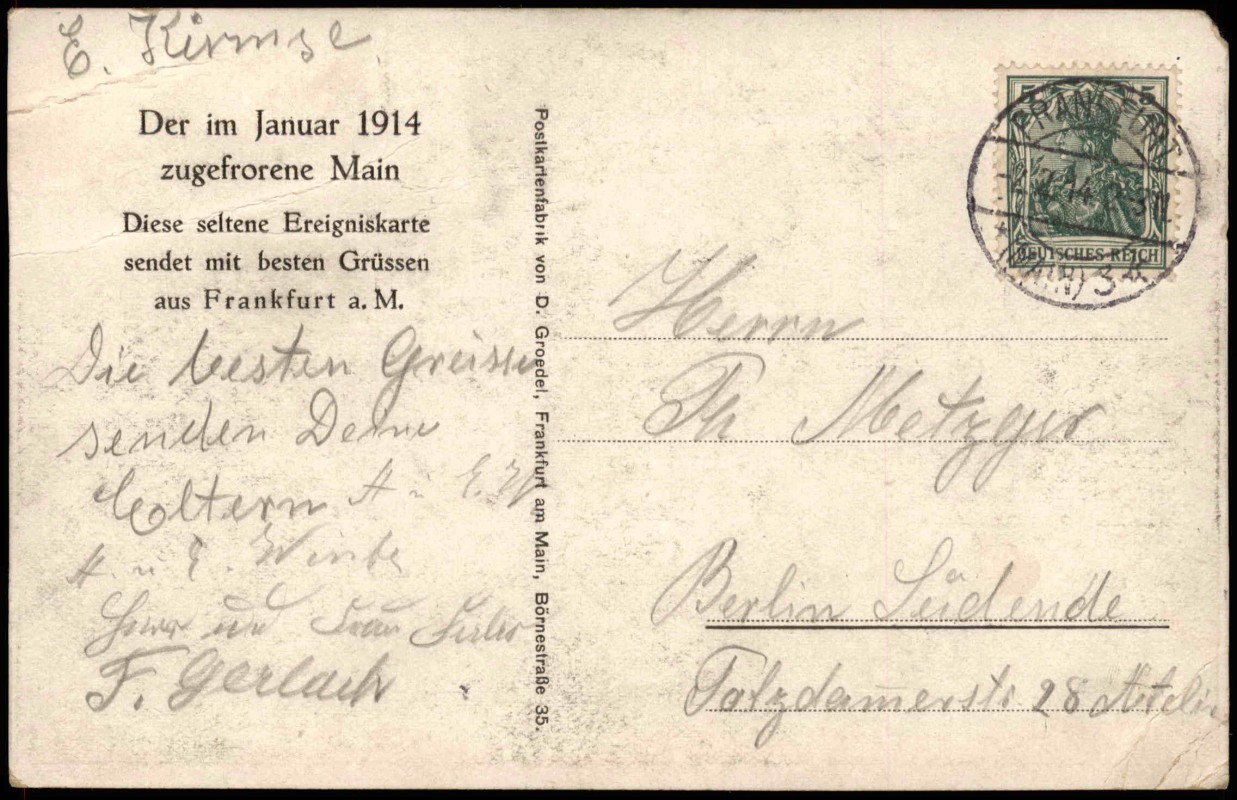 E. Kirmse
Der im Januar 1914
zugefrorene Main
Diese seltene Ereigniskarte
sendet mit besten Grüssen
aus Frankfurt a. M.
Die besten Greisse
senden Deine
Eltern A u E.
A u E.
Herr und Frau
F. Gerlach
Postkartenfabrik von D. Groedel, Frankfurt am Main, Börnestraße 35.
5 5
DEUTSCHES REICH
FRANKFURT
(MAIN) 3
Herrn
Th Metzger
Berlin Südende
Potzdamerstr 28